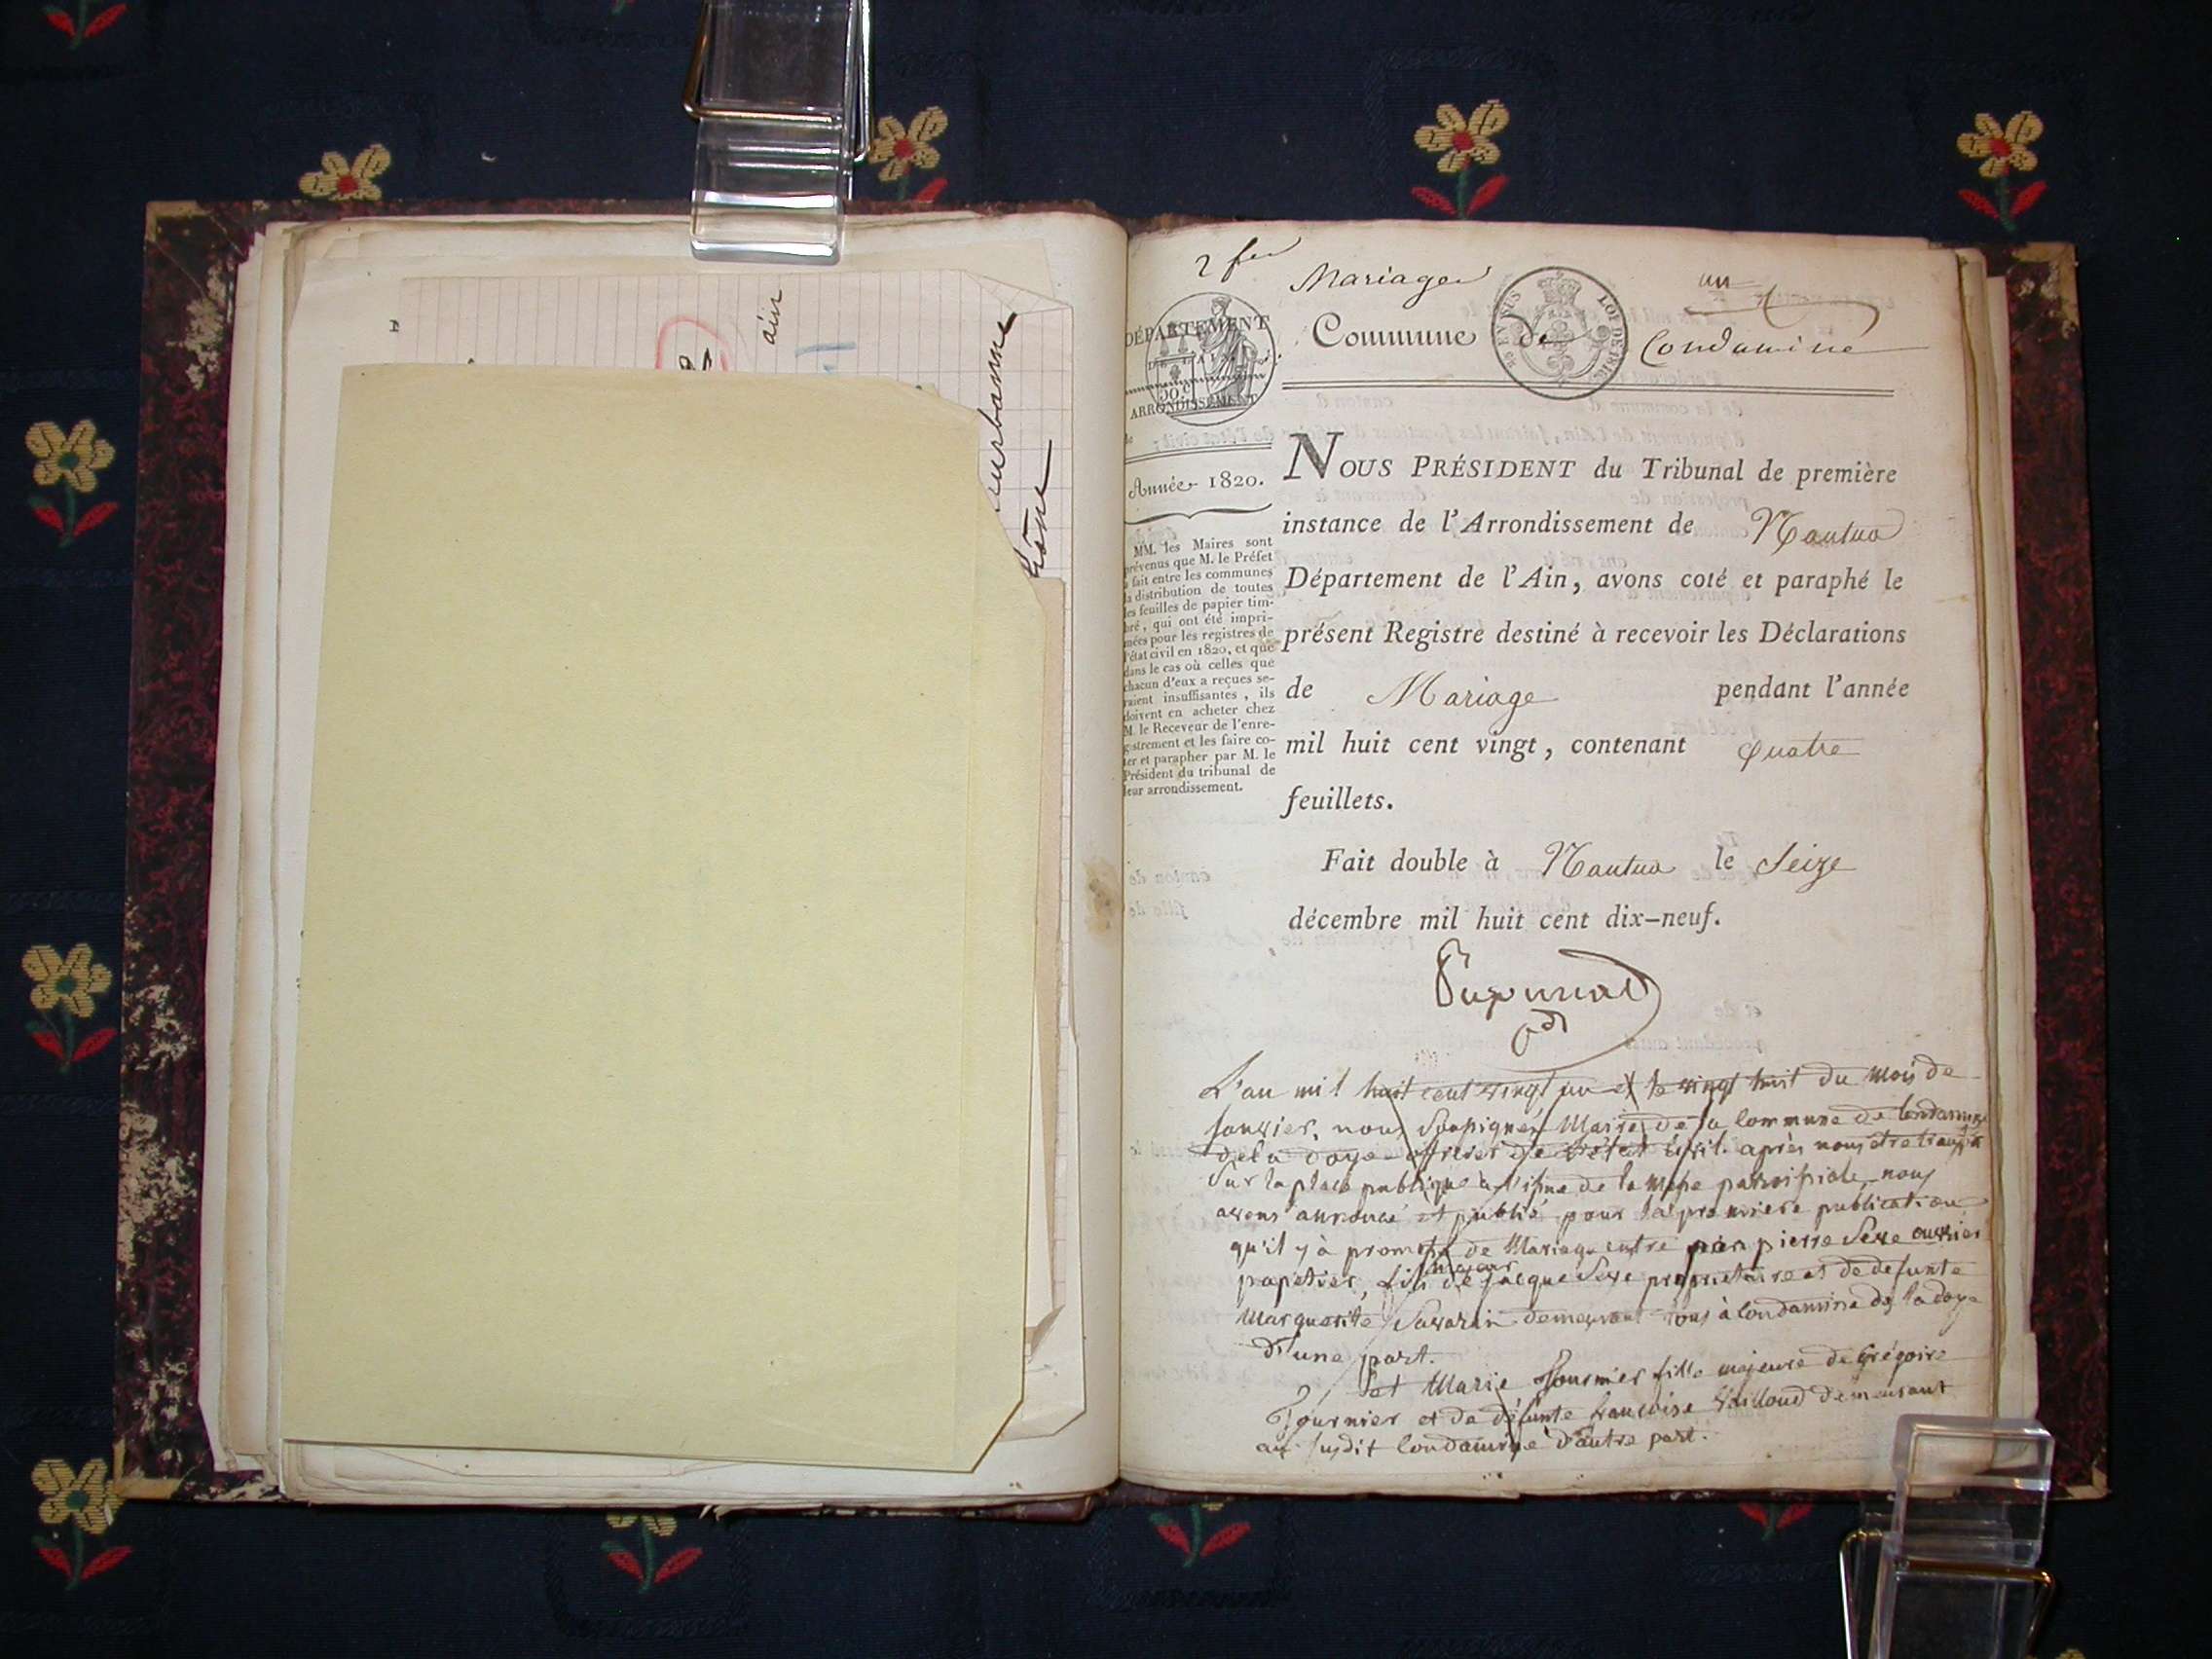 ain
2 f
Mariage
un
DÉPARTEMENT
DE L'AIN.
ARRONDISSEMENT
de
LOI DE 1816
Commune de Condamine
Année 1820.
MM. les Maires sont
prévenus que M. le Préfet
a fait entre les communes
la distribution de toutes
les feuilles de papier tim-
bré, qui ont été impri-
mées pour les registres de
l'état civil en 1820, et que
dans le cas où celles que
chacun d'eux a reçues se-
raient insuffisantes, ils
doivent en acheter chez
M. le Receveur de l'enre-
gistrement et les faire co-
ter et parapher par M. le
Président du tribunal de
leur arrondissement.
NOUS PRÉSIDENT du Tribunal de première
instance de l'Arrondissement de Nantua
Département de l'Ain, avons coté et paraphé le
présent Registre destiné à recevoir les Déclarations
de Mariage pendant l'année
mil huit cent vingt, contenant quatre
feuillets.
Fait double à Nantua le Seize
décembre mil huit cent dix-neuf.
L'an mil huit cent vingt un et le vingt huit du mois de
janvier, nous Soussignés Maire de la Commune de Condamine
de la doye officier de l'état civil. après nous etre
Sur la place publique à l'issue de la messe paroissiale, nous
avons annoncé et publié pour la première publication
qu'il y à promesse de Mariage entre pierre Seve ouvrier
papetier, fils majeur de jacque Seve propriétaire et de defunte
Marguerite Savarin demeurant tous à Condamine de la doye
d'une part.
et Marie Fournier fille majeure de Grégoire
Fournier et de défunte francoise Vailloud demeurant
au susdit Condamine d'autre part.